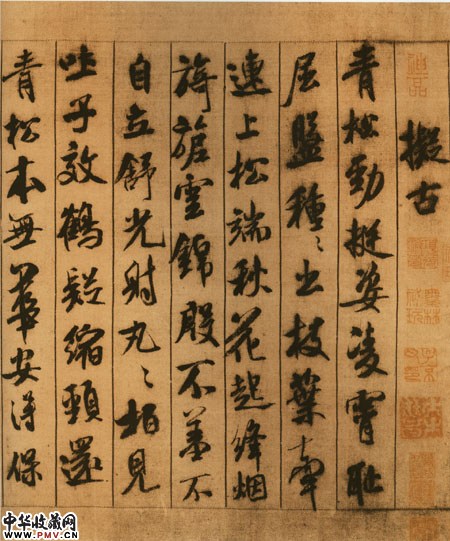 擬古
青松勁挺姿凌霄耻
屈盤種々出枝葉牽
連上松端秋花起絳烟
旖旎雲錦殷不羞不
自立舒光射丸々柏見
吐子效鶴疑縮頸還
青松本無華安得保
中华收藏网
WWW.PMV.CN